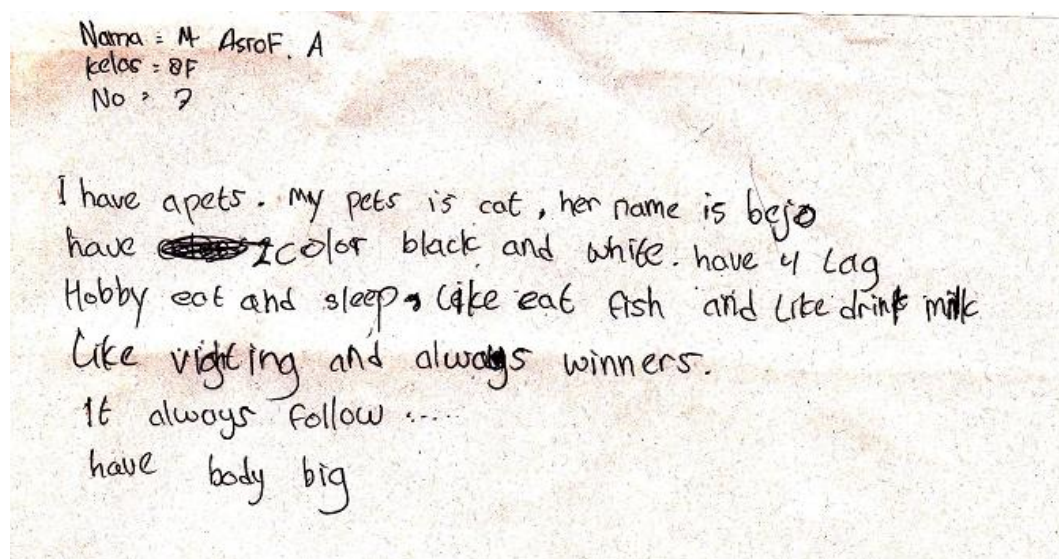 Nama = M AsroF. A
kelas = 8F
No = 7
I have apets. My pets is cat, her name is bejo
have 2 color black and white. have 4 Lag
Hobby eat and sleep, Like eat fish and Like drink milk
Like vighting and always winners.
It always Follow .....
have body big